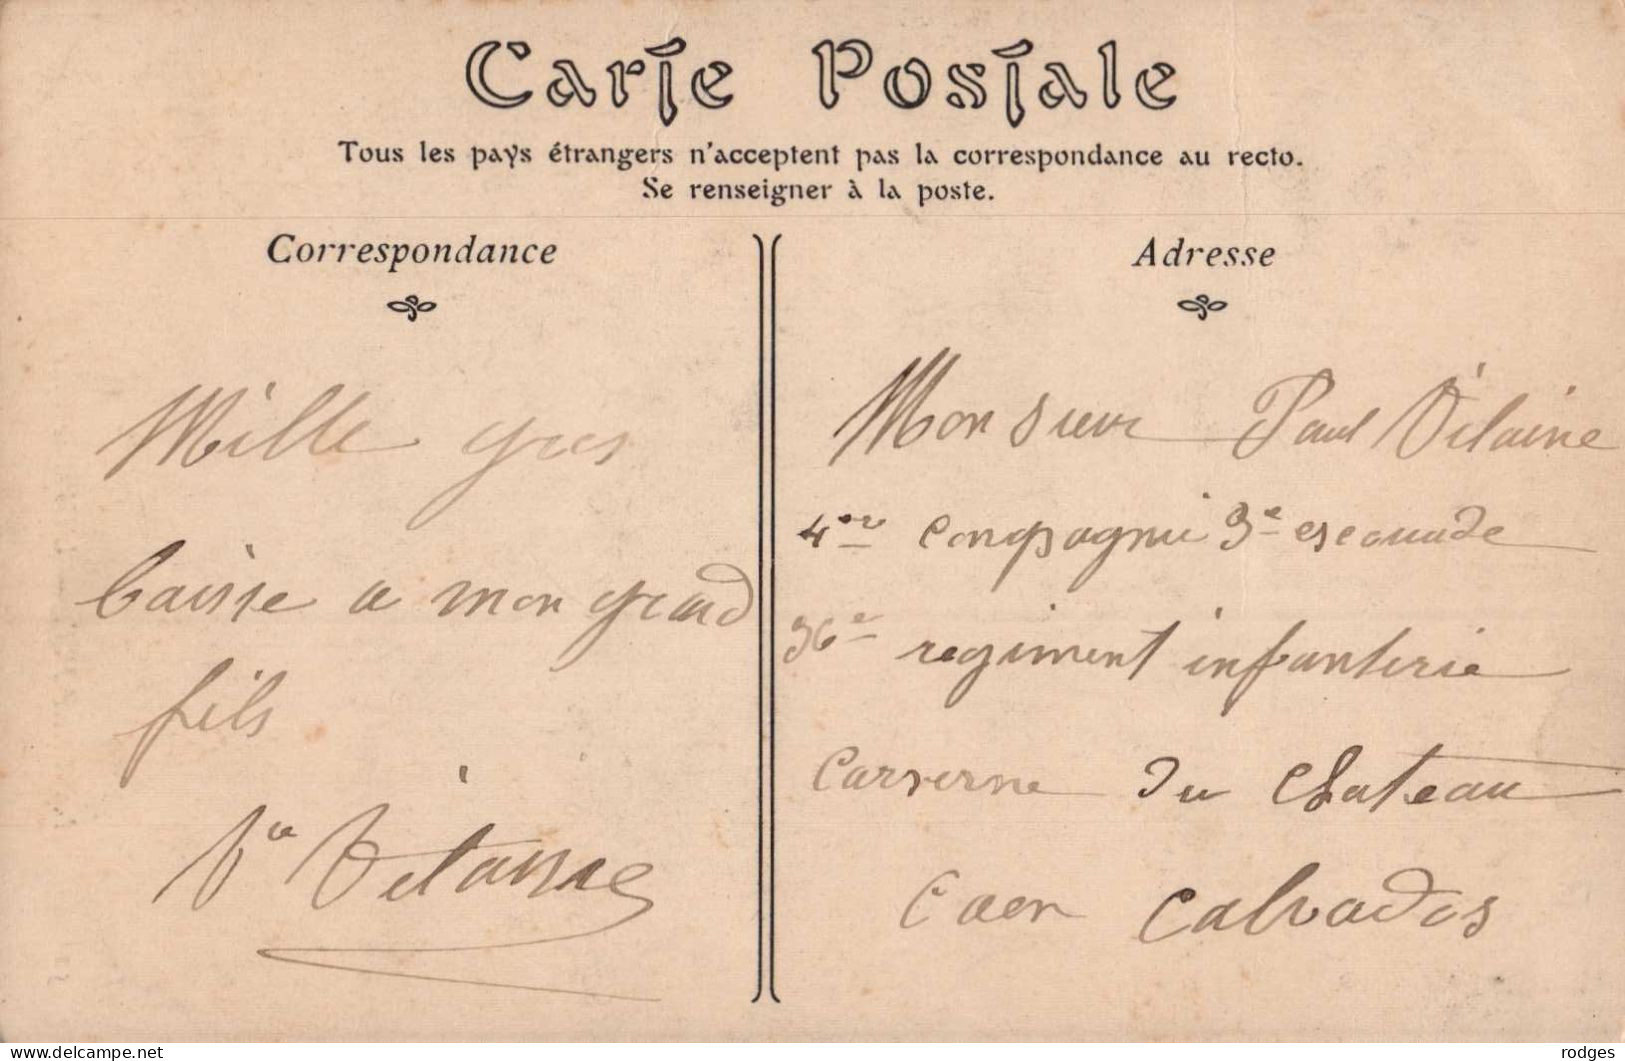 Carte Postale
Tous les pays étrangers n'acceptent pas la correspondance au recto.
Se renseigner à la poste.
Correspondance
Adresse
Mille gros
baisse a mon grand
fils
Vve
Monsieur Paul Vilaine
4me compagnie 3e escouade
36e regiment infanterie
Caserne du Chateau
Caen Calvados
https://www.delcampe.net
rodges